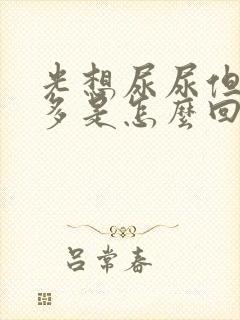 光想尿尿但
多是怎麼回
吕常春